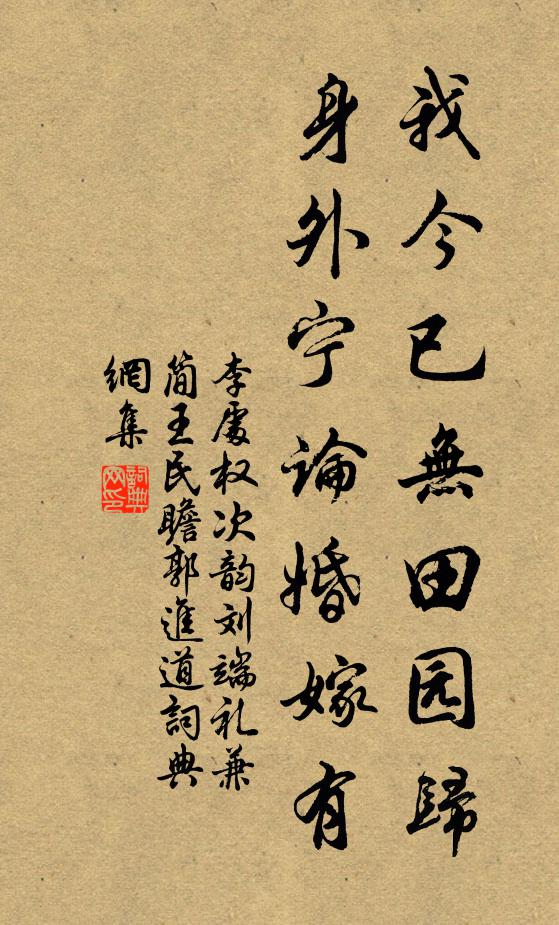 我今已無田园歸
身外宁論婚嫁有
李處权次韵刘端礼兼
簡王民瞻郭進道詞典
網集
詞典
网印